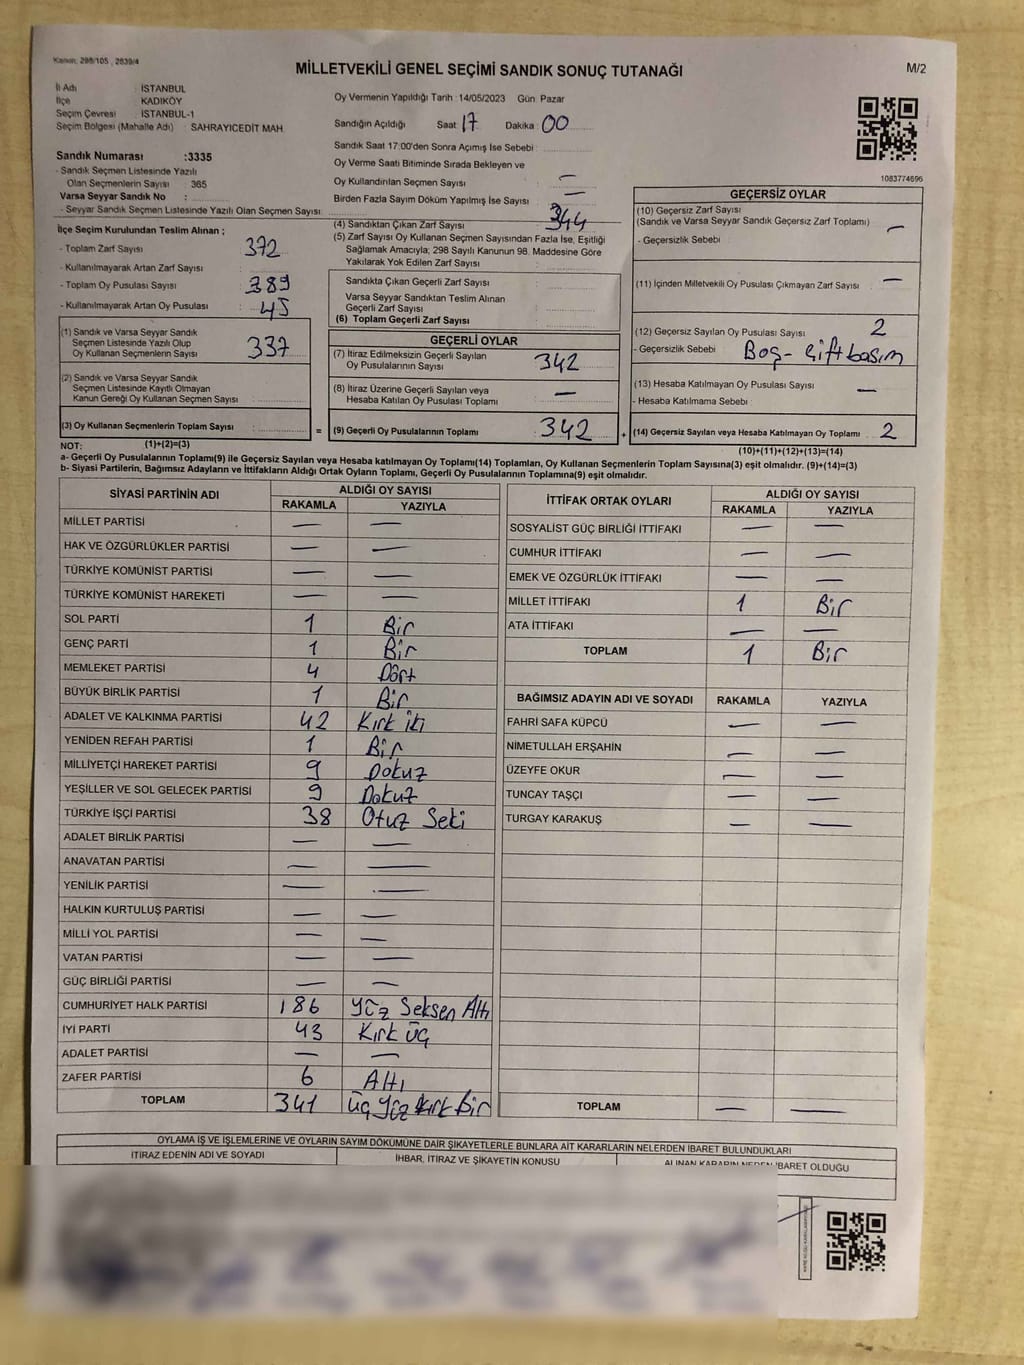 Kanun, 298/105 , 2839/4
MİLLETVEKİLİ GENEL SEÇİMİ SANDIK SONUÇ TUTANAĞI
M/2
İl Adı : İSTANBUL
İlçe : KADIKÖY
Seçim Çevresi : İSTANBUL-1
Seçim Bölgesi (Mahalle Adı) : SAHRAYICEDİT MAH
Oy Vermenin Yapıldığı Tarih : 14/05/2023 Gün : Pazar
Sandığın Açıldığı Saat 17 Dakika 00
Sandık Saat 17:00'den Sonra Açımış İse Sebebi :
Oy Verme Saati Bitiminde Sırada Bekleyen ve
Oy Kullandırılan Seçmen Sayısı : —
Birden Fazla Sayım Döküm Yapılmış İse Sayısı : —
Sandık Numarası :3335
- Sandık Seçmen Listesinde Yazılı
Olan Seçmenlerin Sayısı : 365
Varsa Seyyar Sandık No :
- Seyyar Sandık Seçmen Listesinde Yazılı Olan Seçmen Sayısı :
1083774696
İlçe Seçim Kurulundan Teslim Alınan ;
- Toplam Zarf Sayısı : 372
- Kullanılmayarak Artan Zarf Sayısı :
- Toplam Oy Pusulası Sayısı : 389
- Kullanılmayarak Artan Oy Pusulası : 45
(1) Sandık ve Varsa Seyyar Sandık
Seçmen Listesinde Yazılı Olup
Oy Kullanan Seçmenlerin Sayısı : 337
(2) Sandık ve Varsa Seyyar Sandık
Seçmen Listesinde Kayıtlı Olmayan
Kanun Gereği Oy Kullanan Seçmen Sayısı :
(3) Oy Kullanan Seçmenlerin Toplam Sayısı : =
(4) Sandıktan Çıkan Zarf Sayısı : 344
(5) Zarf Sayısı Oy Kullanan Seçmen Sayısından Fazla İse, Eşitliği
Sağlamak Amacıyla; 298 Sayılı Kanunun 98. Maddesine Göre
Yakılarak Yok Edilen Zarf Sayısı :
Sandıkta Çıkan Geçerli Zarf Sayısı :
Varsa Seyyar Sandıktan Teslim Alınan
Geçerli Zarf Sayısı :
(6) Toplam Geçerli Zarf Sayısı :
GEÇERLİ OYLAR
(7) İtiraz Edilmeksizin Geçerli Sayılan
Oy Pusulalarının Sayısı : 342
(8) İtiraz Üzerine Geçerli Sayılan veya
Hesaba Katılan Oy Pusulası Toplamı : —
(9) Geçerli Oy Pusulalarının Toplamı : 342 +
GEÇERSİZ OYLAR
(10) Geçersiz Zarf Sayısı
(Sandık ve Varsa Seyyar Sandık Geçersiz Zarf Toplamı) : —
- Geçersizlik Sebebi :
(11) İçinden Milletvekili Oy Pusulası Çıkmayan Zarf Sayısı : —
(12) Geçersiz Sayılan Oy Pusulası Sayısı : 2
- Geçersizlik Sebebi : Boş- Çift basım
(13) Hesaba Katılmayan Oy Pusulası Sayısı : —
- Hesaba Katılmama Sebebi :
(14) Geçersiz Sayılan veya Hesaba Katılmayan Oy Toplamı : 2
NOT: (1)+(2)=(3) (10)+(11)+(12)+(13)=(14)
a- Geçerli Oy Pusulalarının Toplamı(9) ile Geçersiz Sayılan veya Hesaba katılmayan Oy Toplamı(14) Toplamları, Oy Kullanan Seçmenlerin Toplam Sayısına(3) eşit olmalıdır. (9)+(14)=(3)
b- Siyasi Partilerin, Bağımsız Adayların ve İttifakların Aldığı Ortak Oyların Toplamı, Geçerli Oy Pusulalarının Toplamına(9) eşit olmalıdır.
SİYASİ PARTİNİN ADI ALDIĞI OY SAYISI
RAKAMLA YAZIYLA
MİLLET PARTİSİ — —
HAK VE ÖZGÜRLÜKLER PARTİSİ — —
TÜRKİYE KOMÜNİST PARTİSİ — —
TÜRKİYE KOMÜNİST HAREKETİ — —
SOL PARTİ 1 Bir
GENÇ PARTİ 1 Bir
MEMLEKET PARTİSİ 4 Dört
BÜYÜK BİRLİK PARTİSİ 1 Bir
ADALET VE KALKINMA PARTİSİ 42 Kırk iki
YENİDEN REFAH PARTİSİ 1 Bir
MİLLİYETÇİ HAREKET PARTİSİ 9 Dokuz
YEŞİLLER VE SOL GELECEK PARTİSİ 9 Dokuz
TÜRKİYE İŞÇİ PARTİSİ 38 Otuz Seki
ADALET BİRLİK PARTİSİ — —
ANAVATAN PARTİSİ — —
YENİLİK PARTİSİ — —
HALKIN KURTULUŞ PARTİSİ — —
MİLLİ YOL PARTİSİ — —
VATAN PARTİSİ — —
GÜÇ BİRLİĞİ PARTİSİ — —
CUMHURİYET HALK PARTİSİ 186 Yüz Seksen Altı
İYİ PARTİ 43 Kırk üç
ADALET PARTİSİ — —
ZAFER PARTİSİ 6 Altı
TOPLAM 341 üç Yüz Kırk Bir
İTTİFAK ORTAK OYLARI ALDIĞI OY SAYISI
RAKAMLA YAZIYLA
SOSYALİST GÜÇ BİRLİĞİ İTTİFAKI — —
CUMHUR İTTİFAKI — —
EMEK VE ÖZGÜRLÜK İTTİFAKI — —
MİLLET İTTİFAKI 1 Bir
ATA İTTİFAKI — —
TOPLAM 1 Bir
BAĞIMSIZ ADAYIN ADI VE SOYADI RAKAMLA YAZIYLA
FAHRİ SAFA KÜPCÜ — —
NİMETULLAH ERŞAHİN — —
ÜZEYFE OKUR — —
TUNCAY TAŞÇI — —
TURGAY KARAKUŞ — —
TOPLAM — —
OYLAMA İŞ VE İŞLEMLERİNE VE OYLARIN SAYIM DÖKÜMÜNE DAİR ŞİKAYETLERLE BUNLARA AİT KARARLARIN NELERDEN İBARET BULUNDUKLARI
İTİRAZ EDENİN ADI VE SOYADI İHBAR, İTİRAZ VE ŞİKAYETİN KONUSU ALINAN KARARIN NEDEN İBARET OLDUĞU